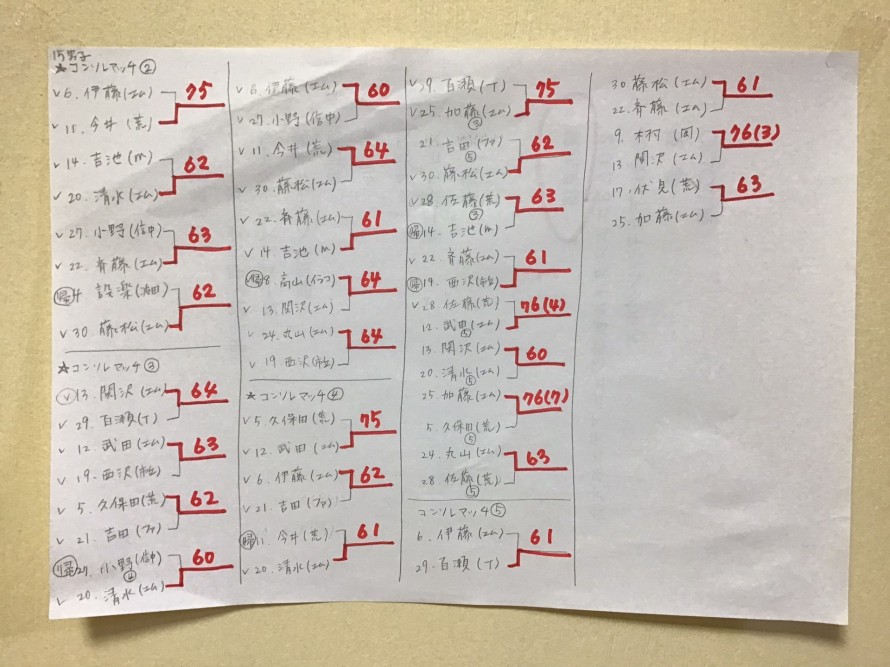 15男子
★コンソルマッチ②
v 6. 伊藤(エム) 75
v 11. 今井(荒)
v 14. 吉池(m) 62
v 20. 清水(エム)
v 27. 小野(信中) 63
v 22. 斉藤(エム)
帰 4 設楽 62
v 30. 藤松(エム)
★コンソルマッチ③
v 13. 関沢(エム) 64
v 29. 百瀬(T)
v 12. 武田(エム) 63
v 19. 西沢
v 5. 久保田(荒) 62
v 21. 吉田(ファ)
帰 27. 小野(信中) 60
④
v 20. 清水(エム)
v 6. 伊藤(エム) 60
v 27. 小野(信中)
v 11. 今井(荒) 64
v 30. 藤松(エム)
v 22. 斉藤(エム) 61
v 14. 吉池(m)
帰 8. 高山 64
v 13. 関沢(エム)
v 24. 丸山(エム) 64
v 19. 西沢
★コンソルマッチ④
v 5. 久保田(荒) 75
v 12. 武田(エム)
v 6. 伊藤(エム) 62
v 21. 吉田(ファ)
帰 11. 今井(荒) 61
v 20. 清水(エム)
v 29. 百瀬(T) 75
v 25. 加藤(エム)
③
21. 吉田(ファ) 62
⑤
v 30. 藤松(エム)
v 28. 佐藤(荒) 63
③
帰 14. 吉池(m)
v 22. 斉藤(エム) 61
帰 19. 西沢
v 28 佐藤(荒) 76(4)
12. 武田(エム)
⑤
13. 関沢(エム) 60
20. 清水(エム)
⑤
25. 加藤(エム) 76(7)
5. 久保田(荒)
⑤
24. 丸山(エム) 63
28. 佐藤(荒)
⑤
コンソルマッチ⑤
6. 伊藤(エム) 61
29. 百瀬(T)
30 藤松(エム) 61
22. 斉藤(エム)
9. 木村 76(3)
13 関沢(エム)
17. 伏見(荒) 63
25. 加藤(エム)